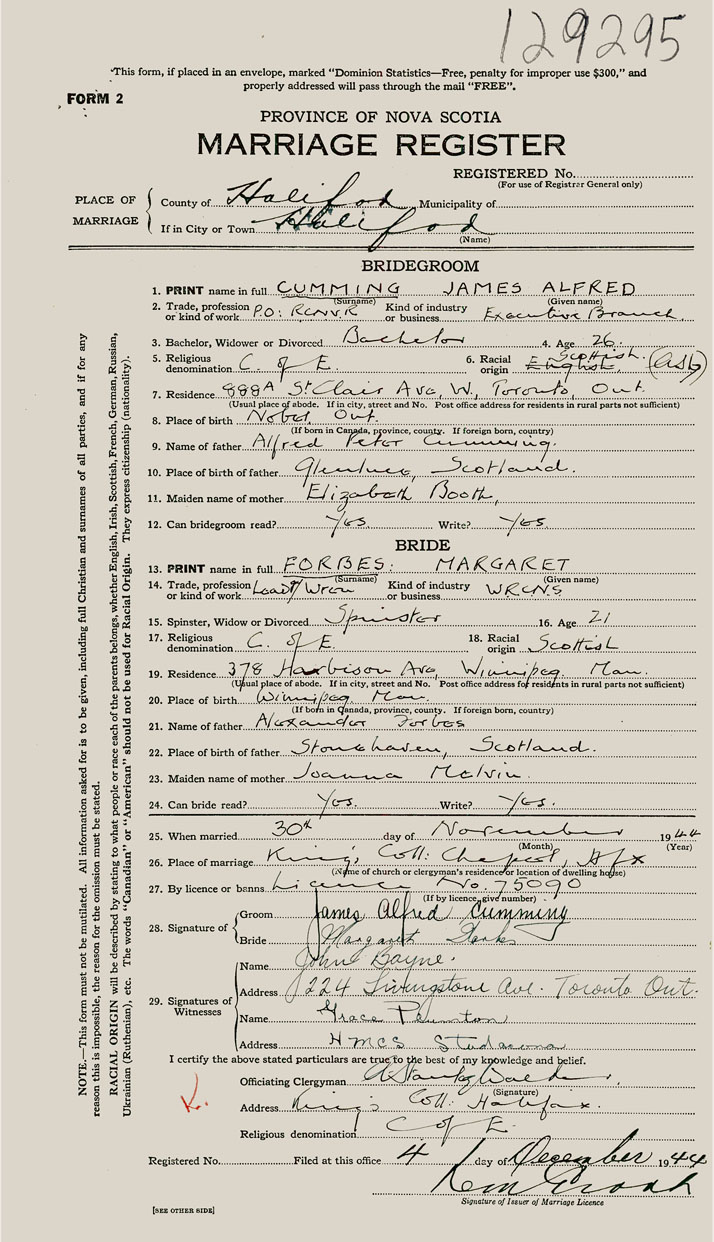 129295
"This form, if placed in an envelope, marked "Dominion Statistics—Free, penalty for improper use $300," and
properly addressed will pass through the mail "FREE".
FORM 2
PROVINCE OF NOVA SCOTIA
MARRIAGE REGISTER
REGISTERED No.
(For use of Registrar General only)
PLACE OF MARRIAGE
County of Halifax Municipality of
If in City or Town Halifax
(Name)
BRIDEGROOM
1. PRINT name in full CUMMING JAMES ALFRED
(Surname) (Given name)
2. Trade, profession or kind of work P.O. RCNVR Kind of industry or business Executive Branch
3. Bachelor, Widower or Divorced Bachelor 4. Age 26
5. Religious denomination C. of E. 6. Racial origin English Scottish.
7. Residence 888A St Clair Ave, W, Toronto, Ont.
(Usual place of abode. If in city, street and No. Post office address for residents in rural parts not sufficient)
8. Place of birth Nobel, Ont.
(If born in Canada, province, county. If foreign born, country)
9. Name of father Alfred Peter Cumming.
10. Place of father Glenluce, Scotland.
11. Maiden name of mother Elizabeth Booth,
12. Can bridegroom read? Yes Write? Yes.
BRIDE
13. PRINT name in full FORBES: MARGARET
(Surname) (Given name)
14. Trade, profession or kind of work Lead/Wren Kind of industry or business WRCNS
15. Spinster, Widow or Divorced Spinster 16. Age 21
17. Religious denomination C. of E. 18. Racial origin Scottish
19. Residence 378 Harbison Ave, Winnipeg. Man.
(Usual place of abode. If in city, street and No. Post office address for residents in rural parts not sufficient)
20. Place of birth Winnipeg, Man.
(If born in Canada, province, county. If foreign born, country)
21. Name of father Alexander Forbes
22. Place of birth of father Stonehaven, Scotland.
23. Maiden name of mother Joanna Melvin.
24. Can bride read? Yes. Write? Yes.
25. When married 30th day of November 1944
(Month) (Year)
26. Place of marriage King's Coll: Chapel, Hfx
(Name of church or clergyman's residence or location of dwelling house)
27. By licence or banns Licence No. 75090
(If by licence, give number)
28. Signature of
Groom James Alfred Cumming
Bride Margaret Forbes
29. Signatures of Witnesses
Name John Bayne.
Address 224 Livingstone Ave. Toronto Ont.
Name Grace
Address HMCS Stadacona
I certify the above stated particulars are true to the best of my knowledge and belief.
Officiating Clergyman
(Signature)
Address King's Coll: Halifax.
Religious denomination C of E.
Registered No. Filed at this office 4 day of December 1944
Signature of Issuer of Marriage Licence
[SEE OTHER SIDE]
NOTE.—This form must not be mutilated. All information asked for is to be given, including full Christian and surnames of all parties, and if for any
reason this is impossible, the reason for the omission must be stated.
RACIAL ORIGIN will be described by stating to what people or race each of the parents belongs, whether English, Irish, Scottish, French, German, Russian,
Ukrainian (Ruthenian), etc. The words "Canadian" or "American" should not be used for Racial Origin. They express citizenship (nationality).